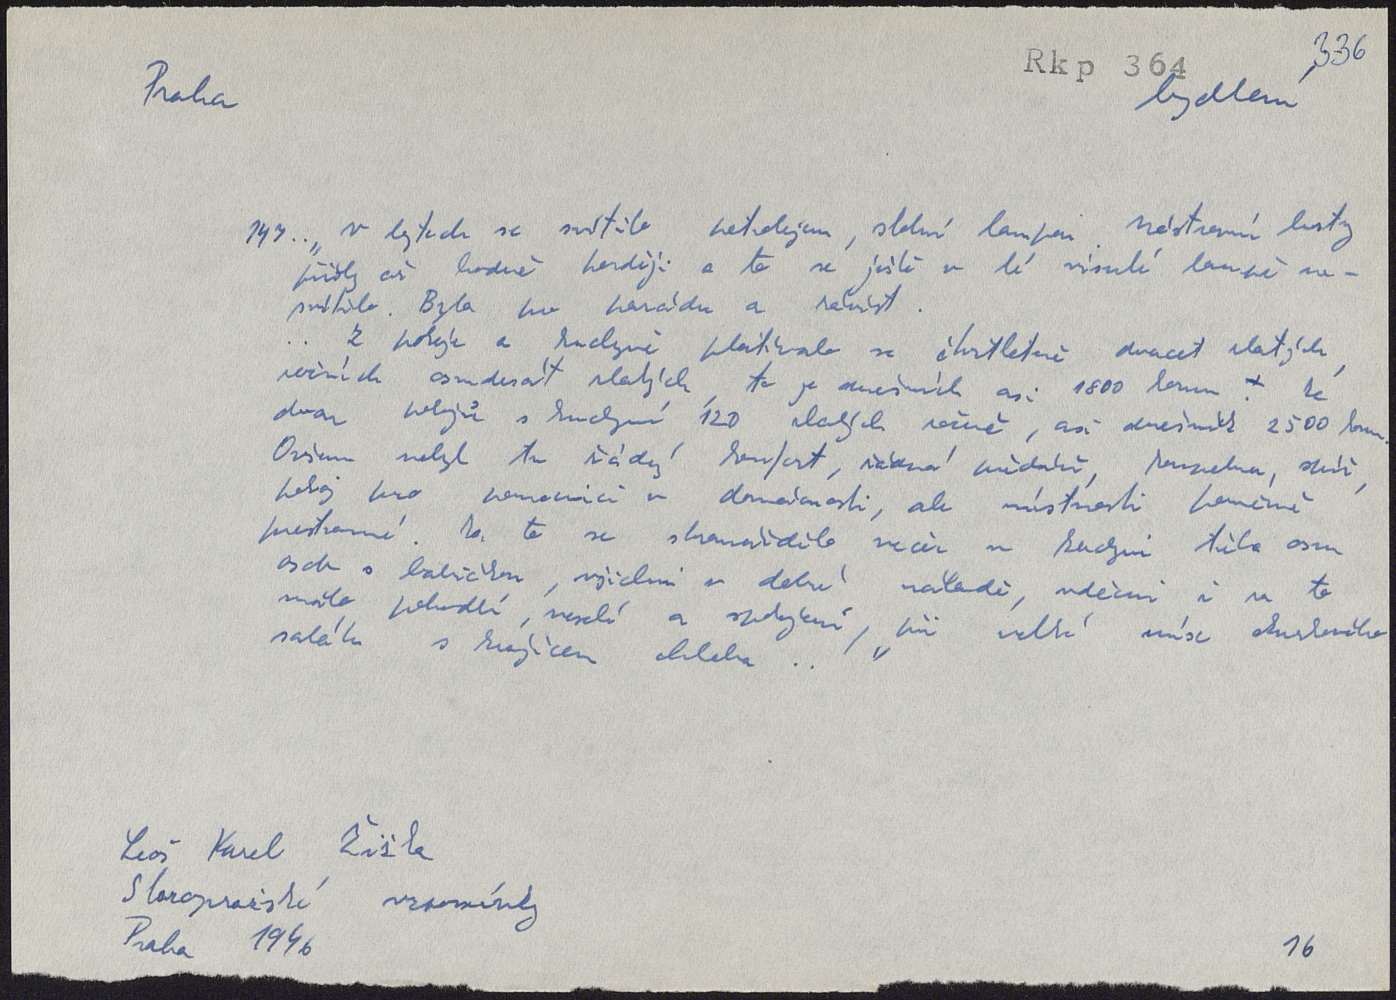 336
Rkp 364
Praha
bydlení
147.. „V bytech se svítilo petrolejem, stolní lampou. Nástropní lustry
přišly až hodně později a to se ještě v té visuté lampě ne-
svítilo. Byla pro parádu a závist.
.. Z pokoje a kuchyně platívalo se čtvrtletně dvacet zlatých,
ročních osmdesát zlatých, to je dnešních asi 1800 korun. Za
dvou pokojů s kuchyní 120 zlatých ročně, asi dnešních 2500 korun.
Ovšem nebyl tu žádný komfort, žádná předsíň, koupelna, spíž,
pokoj pro pomocnici v domácnosti, ale místnosti poměrně
prostranné. Za to se shromáždilo večer v kuchyni třeba osm
osob s babičkou, všichni v dobré náladě, vděčni i za to
málo pohodlí, veselí a spokojení, při velké míse okurkového
salátu s krajícem chleba .. "
Leoš Karel Žižka
Staropražské vzpomínky
Praha 1946
16